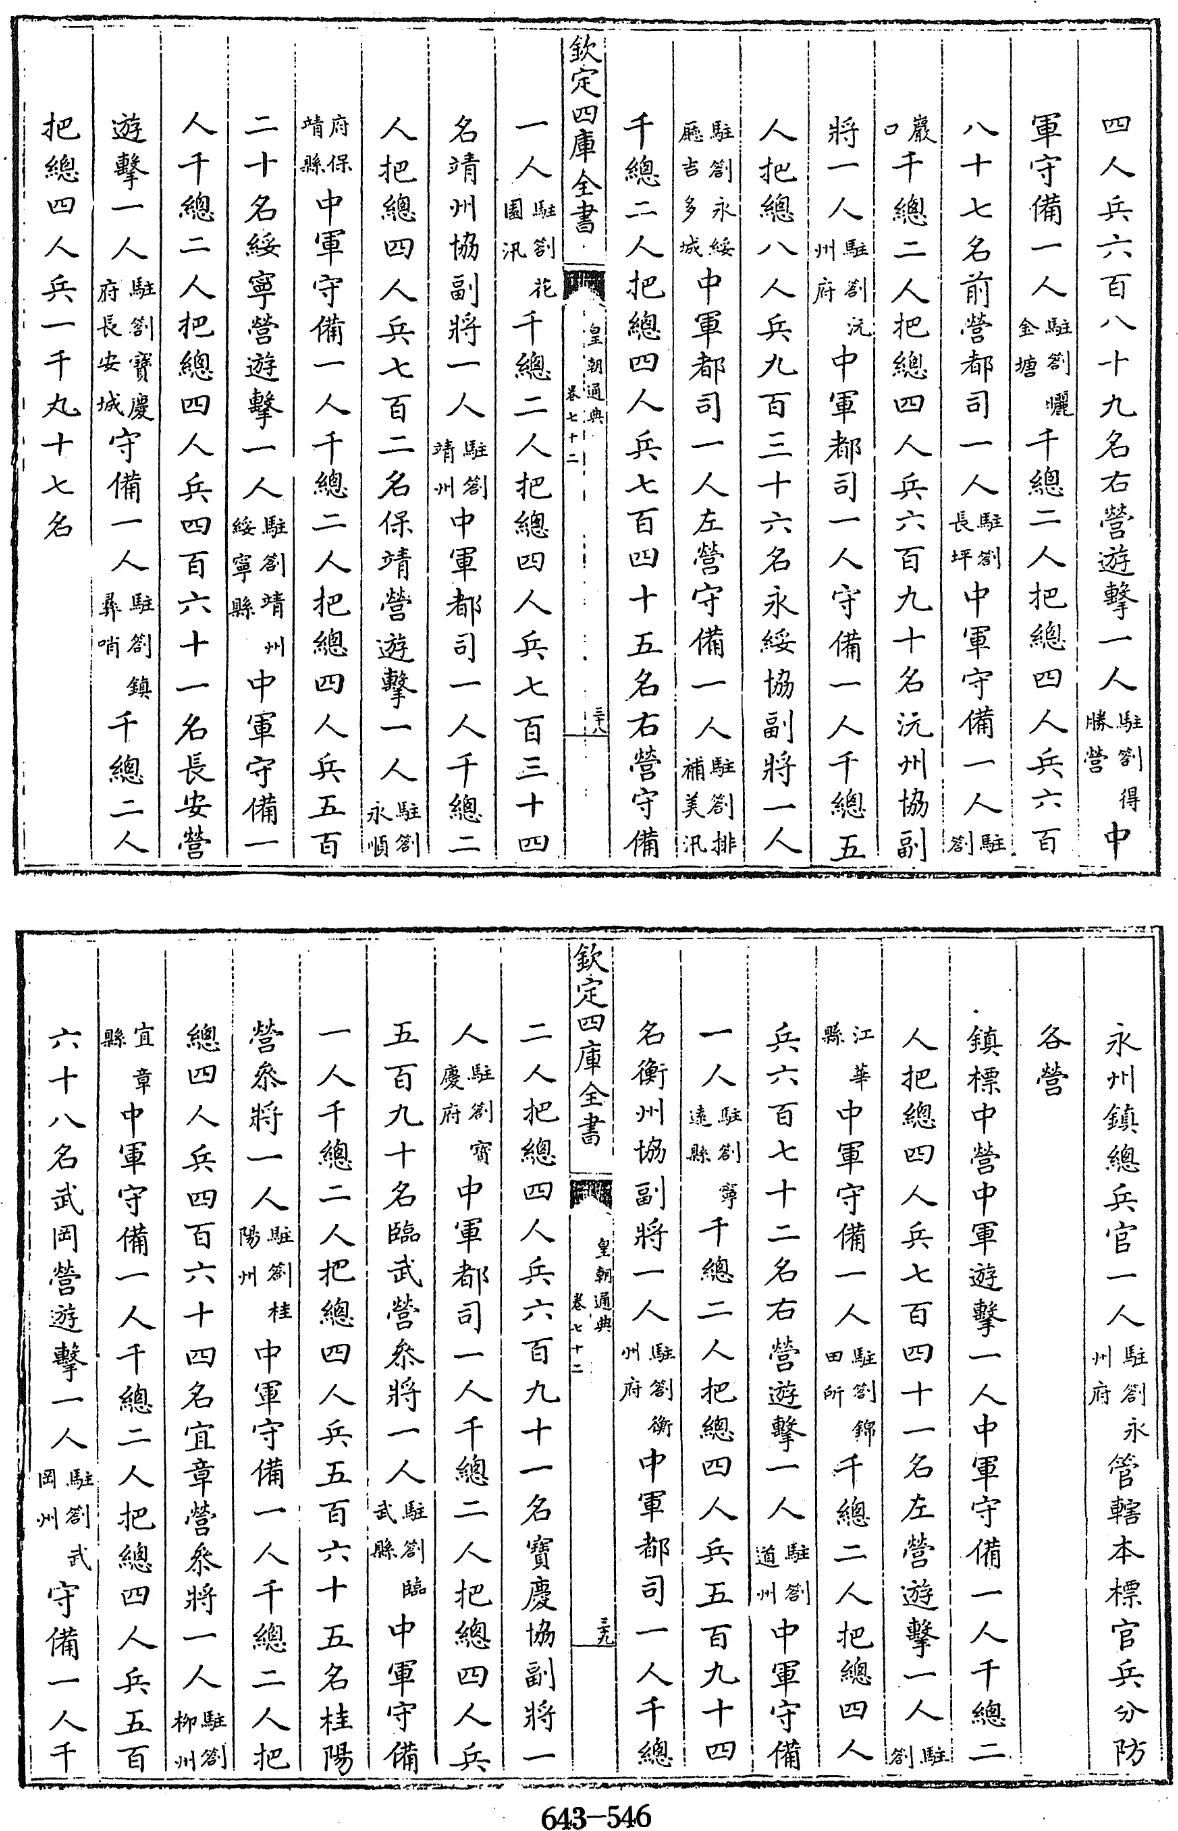 四人兵六百八十九名右營遊擊一人駐劄得勝營中
軍守備一人駐劄曬金塘千總二人把總四人兵六百
八十七名前營都司一人駐劄長坪中軍守備一人駐劄
巖口千總二人把總四人兵六百九十名沅州協副
將一人駐劄沅州府中軍都司一人守備一人千總五
人把總八人兵九百三十六名永綏協副將一人
駐劄永綏廳吉多城中軍都司一人左營守備一人駐劄排補美汛
千總二人把總四人兵七百四十五名右營守備
欽定四庫全書
皇朝通典
卷七十二
三十八
一人駐劄花園汛千總二人把總四人兵七百三十四
名靖州協副將一人駐劄靖州中軍都司一人千總二
人把總四人兵七百二名保靖營遊擊一人駐劄永順
府保靖縣中軍守備一人千總二人把總四人兵五百
二十名綏寧營遊擊一人駐劄靖州綏寧縣中軍守備一
人千總二人把總四人兵四百六十一名長安營
遊擊一人駐劄寶慶府長安城守備一人駐劄鎮彞哨千總二人
把總四人兵一千九十七名
永州鎮總兵官一人駐劄永州府管轄本標官兵分防
各營
鎮標中營中軍遊擊一人中軍守備一人千總二
人把總四人兵七百四十一名左營遊擊一人駐劄
江華縣中軍守備一人駐劄錦田所千總二人把總四人
兵六百七十二名右營遊擊一人駐劄道州中軍守備
一人駐劄寧遠縣千總二人把總四人兵五百九十四
名衡州協副將一人駐劄衡州府中軍都司一人千總
欽定四庫全書
皇朝通典
卷七十二
三十九
二人把總四人兵六百九十一名寶慶協副將一
人駐劄寶慶府中軍都司一人千總二人把總四人兵
五百九十名臨武營叅將一人駐劄臨武縣中軍守備
一人千總二人把總四人兵五百六十五名桂陽
營叅將一人駐劄桂陽州中軍守備一人千總二人把
總四人兵四百六十四名宜章營叅將一人駐劄郴州
宜章縣中軍守備一人千總二人把總四人兵五百
六十八名武岡營遊擊一人駐劄武岡州守備一人千
643-546